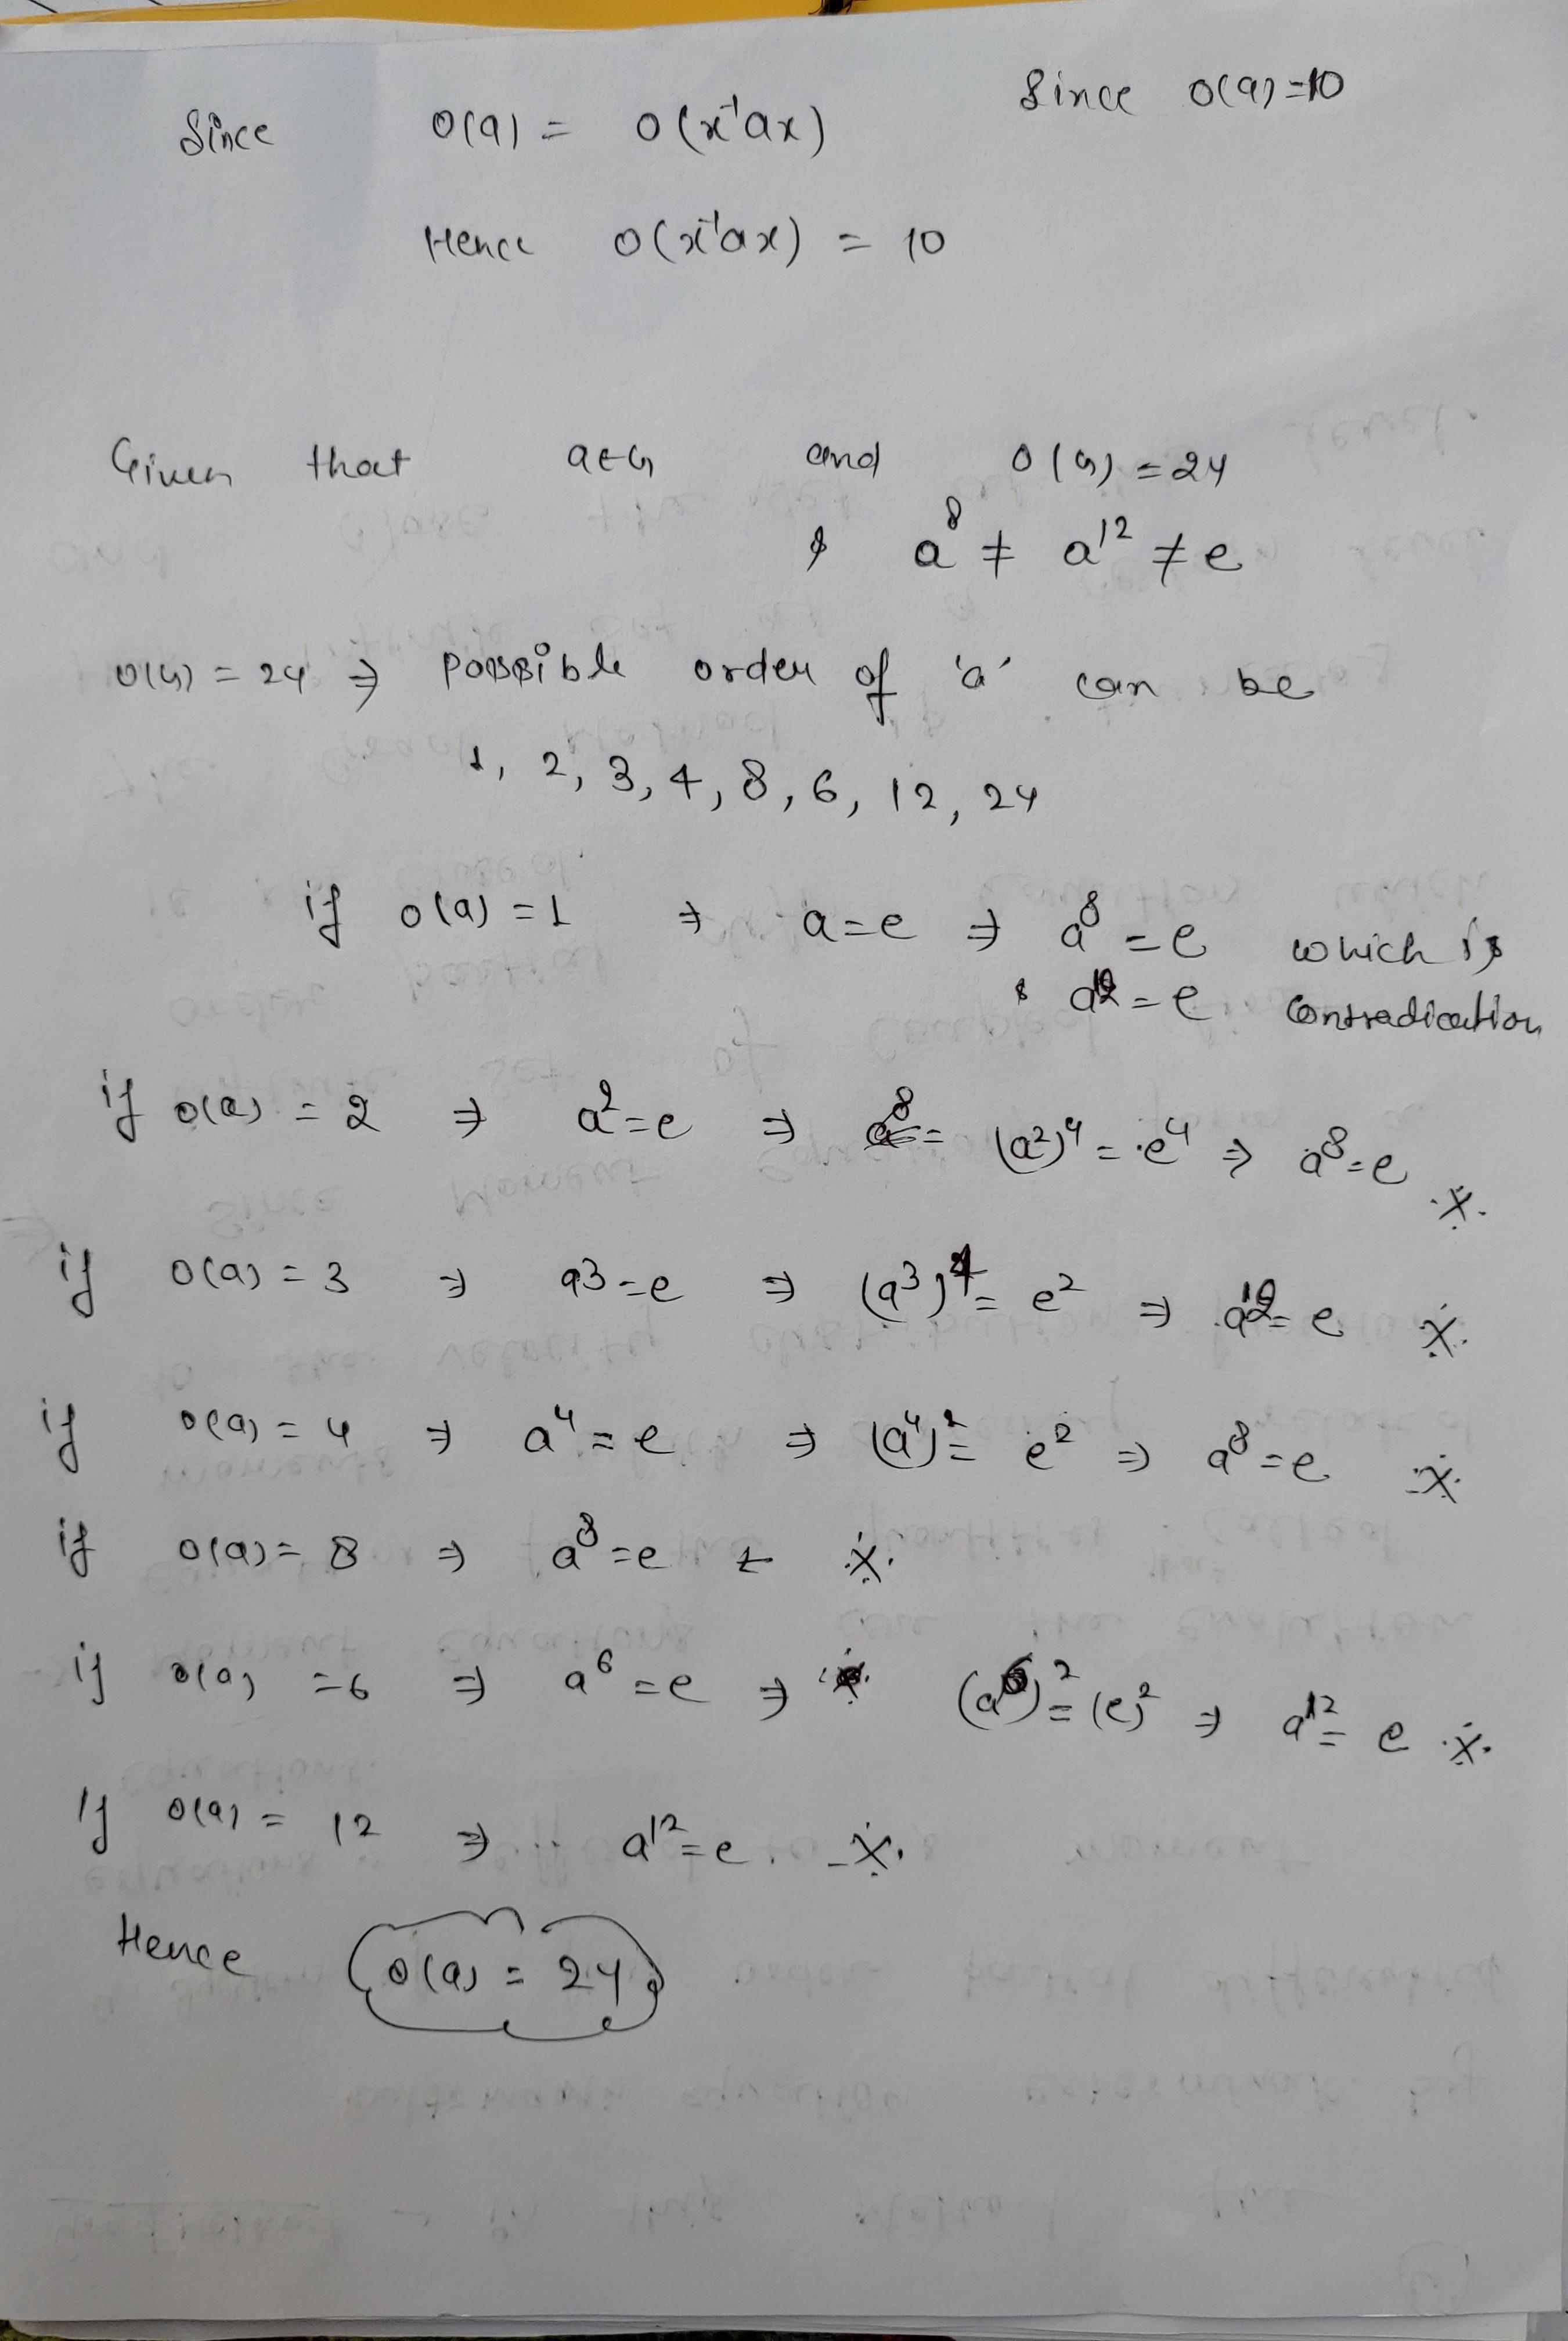 Since O(a) = O(x⁻¹ax) Since O(a)=10
Hence O(x⁻¹ax) = 10
Given that a∈G and O(G) = 24
& a⁸ ≠ a¹² ≠ e
O(G) = 24 ⇒ possible order of 'a' can be
1, 2, 3, 4, 8, 6, 12, 24
if O(a) = 1 ⇒ a=e ⇒ a⁸ = e which is
& a¹² = e Contradication
if O(a) = 2 ⇒ a²=e ⇒ (a²)⁴ = e⁴ ⇒ a⁸=e ※
if O(a) = 3 ⇒ a³=e ⇒ (a³)⁴ = e² ⇒ a¹² = e ※
if O(a) = 4 ⇒ a⁴ = e ⇒ (a⁴)² = e² ⇒ a⁸ = e ※
if O(a) = 8 ⇒ a⁸ = e ※
if O(a) = 6 ⇒ a⁶ = e ⇒ (a⁶)² = (e)² ⇒ a¹² = e ※
If O(a) = 12 ⇒ a¹² = e ※
Hence O(a) = 24